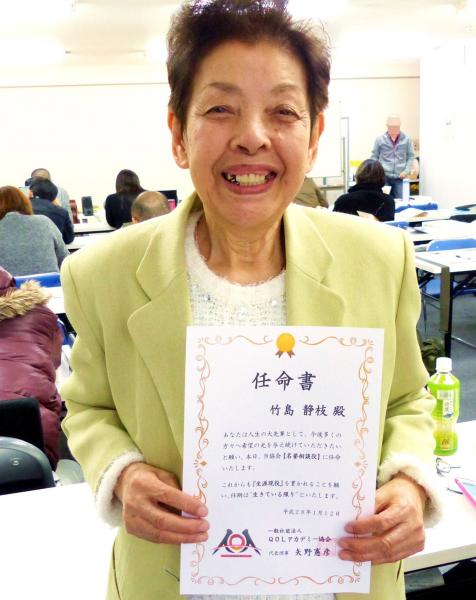 任命書
竹島 静枝 殿
あなたは人生の大先輩として、今後多くの
方々へ希望の光を与え続けていただきたい
と願い、本日、当協会【名誉相談役】に任命
いたします。
これからも『生涯現役』を貫かれることを願
い、任期は“生きている限り”といたします。
平成28年1月12日
一般社団法人
QOLアカデミー協会
代表理事 矢野憲彦